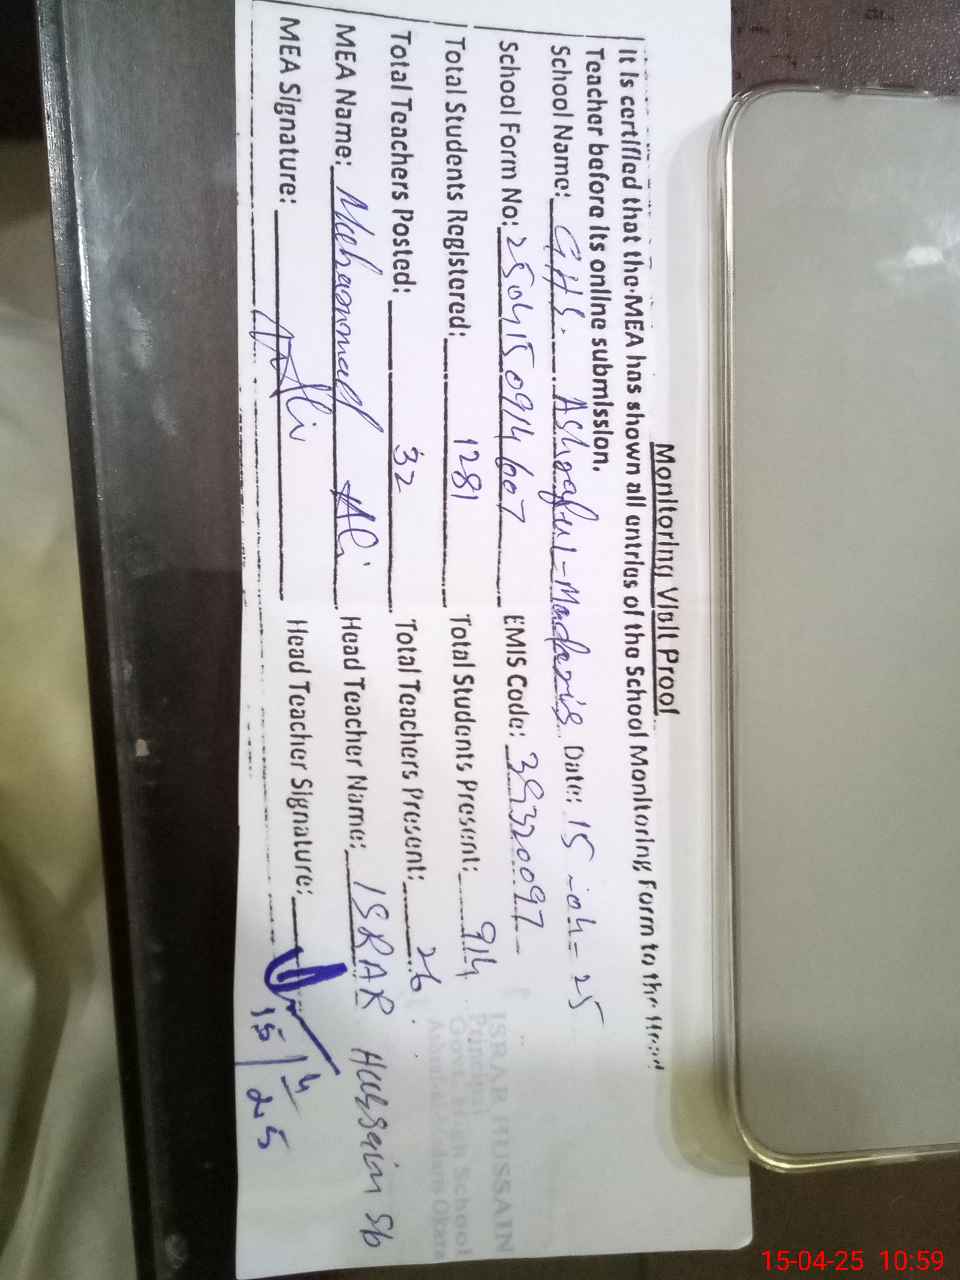 Monitoring Visit Proof
It is certified that the MEA has shown all entries of the School Monitoring Form to the Head
Teacher before its online submission.
School Name: GHS. Ashraful-Madaris Date: 15-04-25
School Form No: 2504150914607 EMIS Code: 39320097
Total Students Registered: 1281 Total Students Present: 914
Total Teachers Posted: 32 Total Teachers Present: 26
MEA Name: Muhammad Ali Head Teacher Name: ISRAR Hussain Sb
MEA Signature: MAli Head Teacher Signature:
15/4/25
ISRAR HUSSAIN
Principal
Govt. High School
Ashraf ul Madaris Okara
15-04-25 10:59